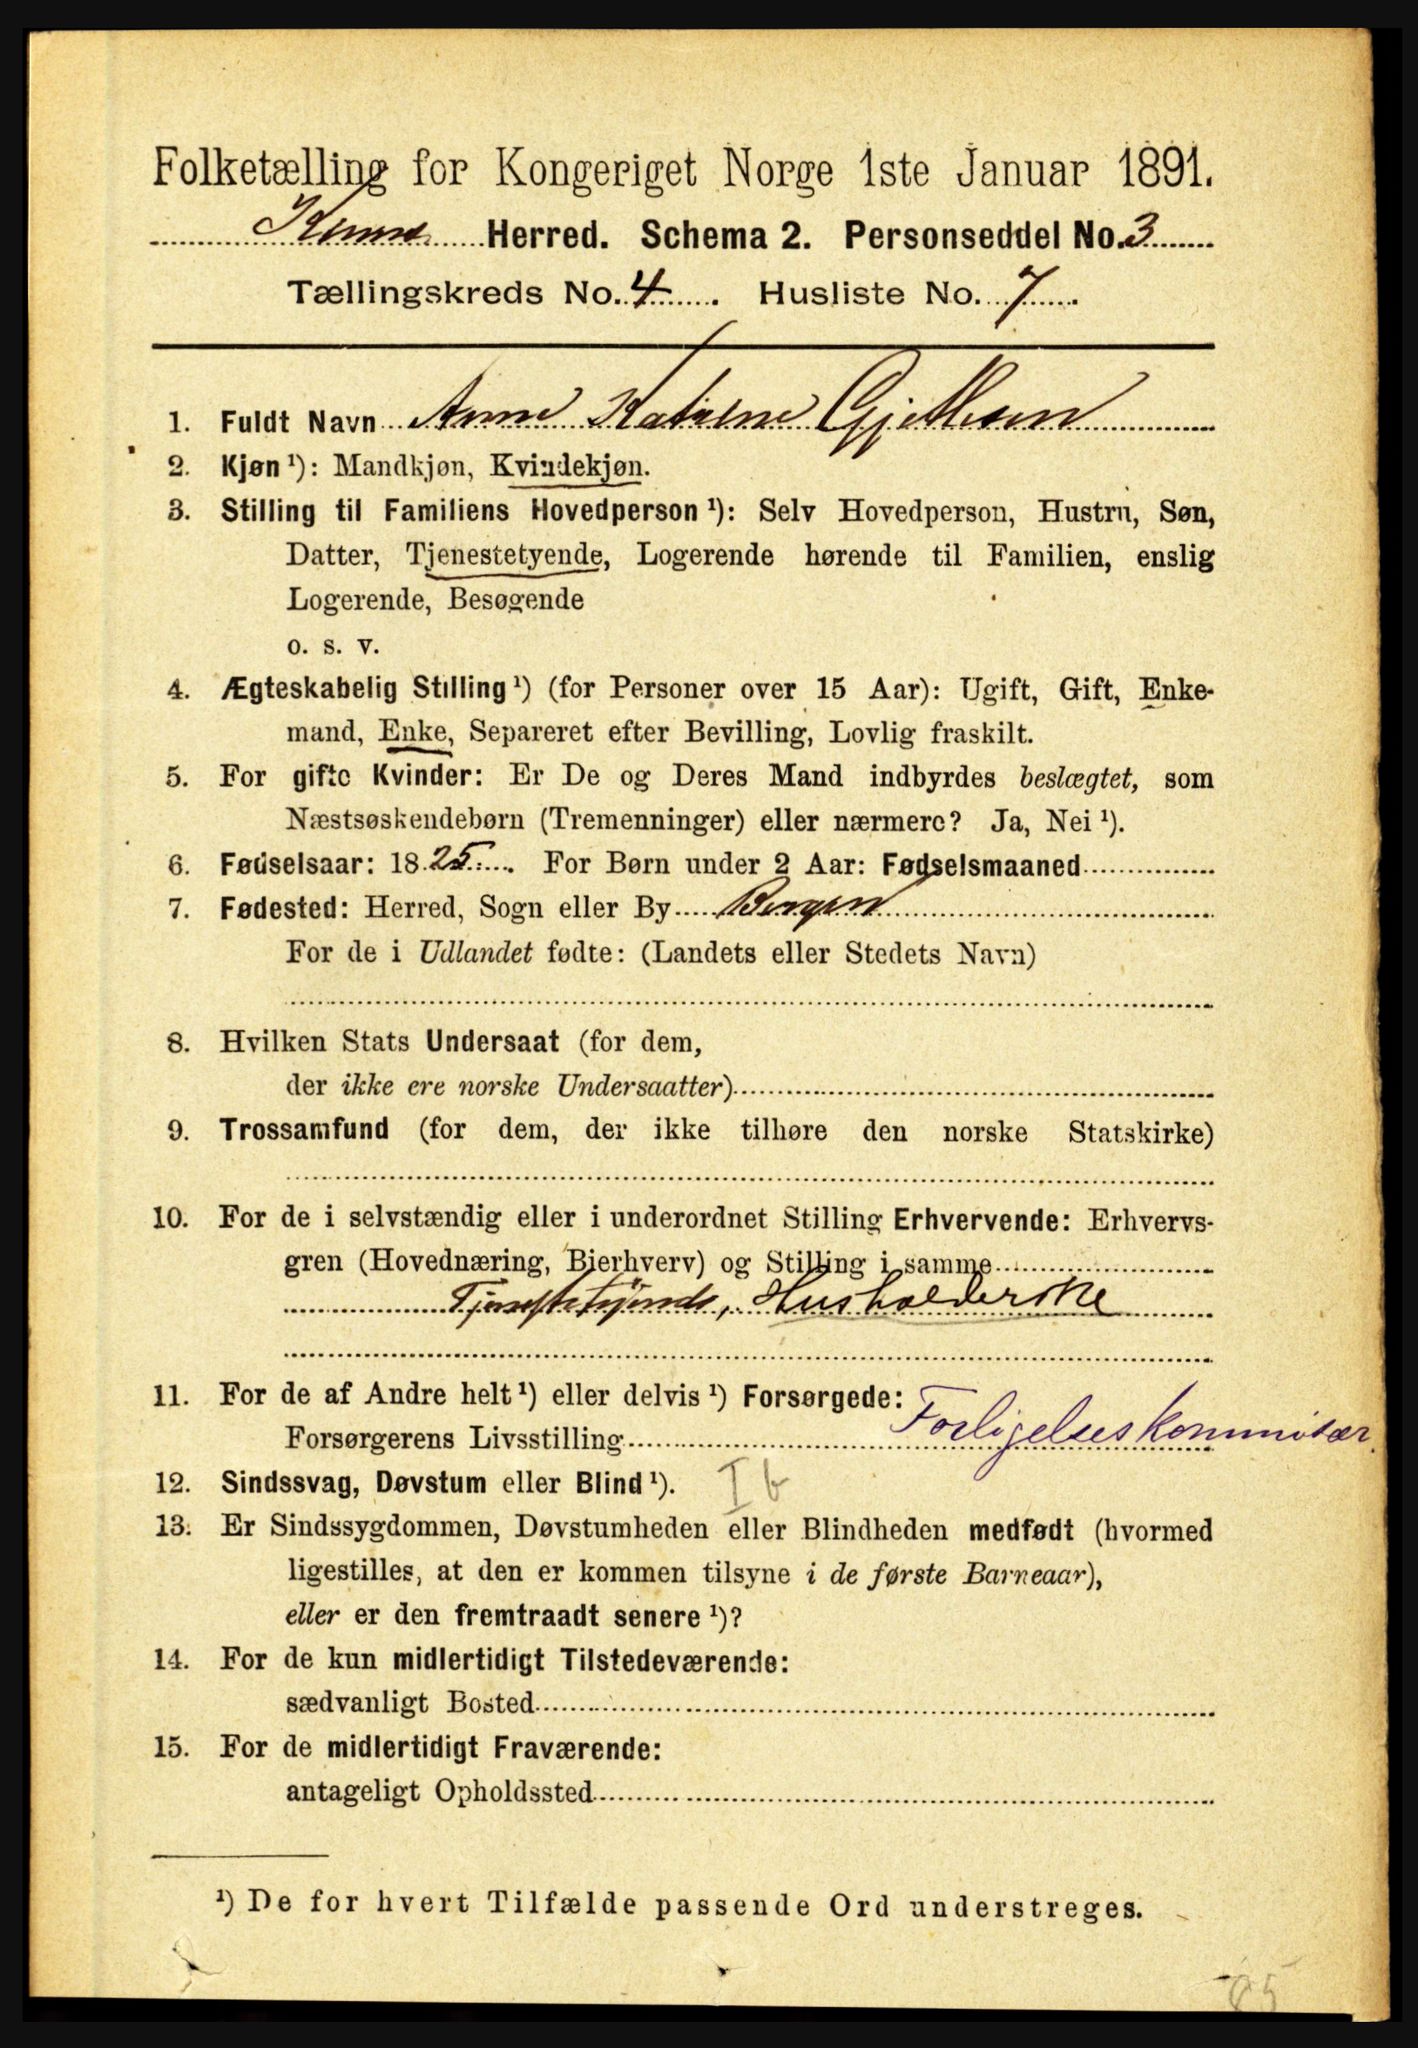 Folketælling for Kongeriget Norge 1ste Januar 1891.
Kinns Herred. Schema 2. Personseddel No. 3
Tællingskreds No. 4. Husliste No. 7.
1. Fuldt Navn Anne Katrene Gjettesen
2. Kjøn ¹): Mandkjøn, Kvindekjøn.
3. Stilling til Familiens Hovedperson ¹): Selv Hovedperson, Hustru, Søn,
Datter, Tjenestetyende, Logerende hørende til Familien, enslig
Logerende, Besøgende
o. s. v.
4. Ægteskabelig Stilling ¹) (for Personer over 15 Aar): Ugift, Gift, Enke-
mand, Enke, Separeret efter Bevilling, Lovlig fraskilt.
5. For gifte Kvinder: Er De og Deres Mand indbyrdes beslægtet, som
Næstsøskendebørn (Tremenninger) eller nærmere? Ja, Nei ¹).
6. Fødselsaar: 1825. For Børn under 2 Aar: Fødselsmaaned
7. Fødested: Herred, Sogn eller By Bergen
For de i Udlandet fødte: (Landets eller Stedets Navn)
8. Hvilken Stats Undersaat (for dem,
der ikke ere norske Undersaatter)
9. Trossamfund (for dem, der ikke tilhøre den norske Statskirke)
10. For de i selvstændig eller i underordnet Stilling Erhvervende: Erhvervs-
gren (Hovednæring, Bierhverv) og Stilling i samme
Tjenestetyende, Husholderske
11. For de af Andre helt ¹) eller delvis ¹) Forsørgede:
Forsørgerens Livsstilling Forligelseskommissær.
12. Sindssvag, Døvstum eller Blind ¹). I b
13. Er Sindssygdommen, Døvstumheden eller Blindheden medfødt (hvormed
ligestilles, at den er kommen tilsyne i de første Barneaar),
eller er den fremtraadt senere ¹)?
14. For de kun midlertidigt Tilstedeværende:
sædvanligt Bosted
15. For de midlertidigt Fraværende:
antageligt Opholdssted
¹) De for hvert Tilfælde passende Ord understreges.
85